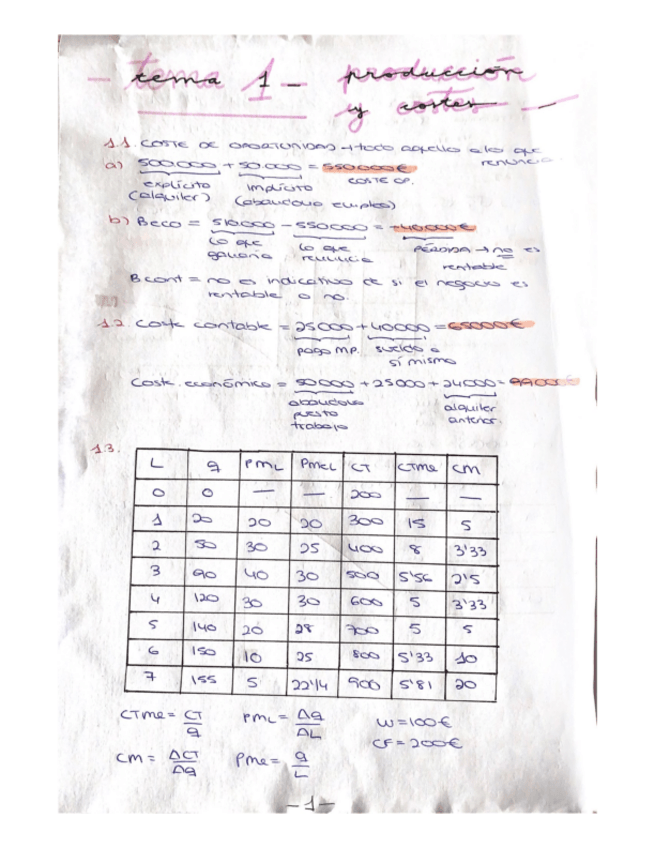 - tema 1 - producción
y costes -
1.1. COSTE DE OPORTUNIDAD → todo aquello a lo que
renuncio.
a) 500.000 + 50.000 = 550.000€
explícito implícito COSTE OP.
(alquiler) (abandono empleo)
b) Beco = 510.000 - 550.000 = -40.000€
Lo que Lo que PÉRDIDA → no es
ganaría renuncia rentable
Bcont = no es indicativo de si el negocio es
rentable o no.
1.2. Coste contable = 25000 + 40000 = 65000€
pago MP. sueldo a
sí mismo
Coste económico = 50000 + 25000 + 24000 = 99000€
abandono alquiler
puesto anterior.
trabajo
1.3.
L q PML PMeL CT CTMe CM
0 0 — — 200 — —
1 20 20 20 300 15 5
2 50 30 25 400 8 3'33
3 90 40 30 500 5'56 2'5
4 120 30 30 600 5 3'33
5 140 20 28 700 5 5
6 150 10 25 800 5'33 10
7 155 5 22'14 900 5'81 20
CTMe = CT/q PML = Δq/ΔL W=100€
CF=200€
CM = ΔCT/Δq PMe = q/L
-1-